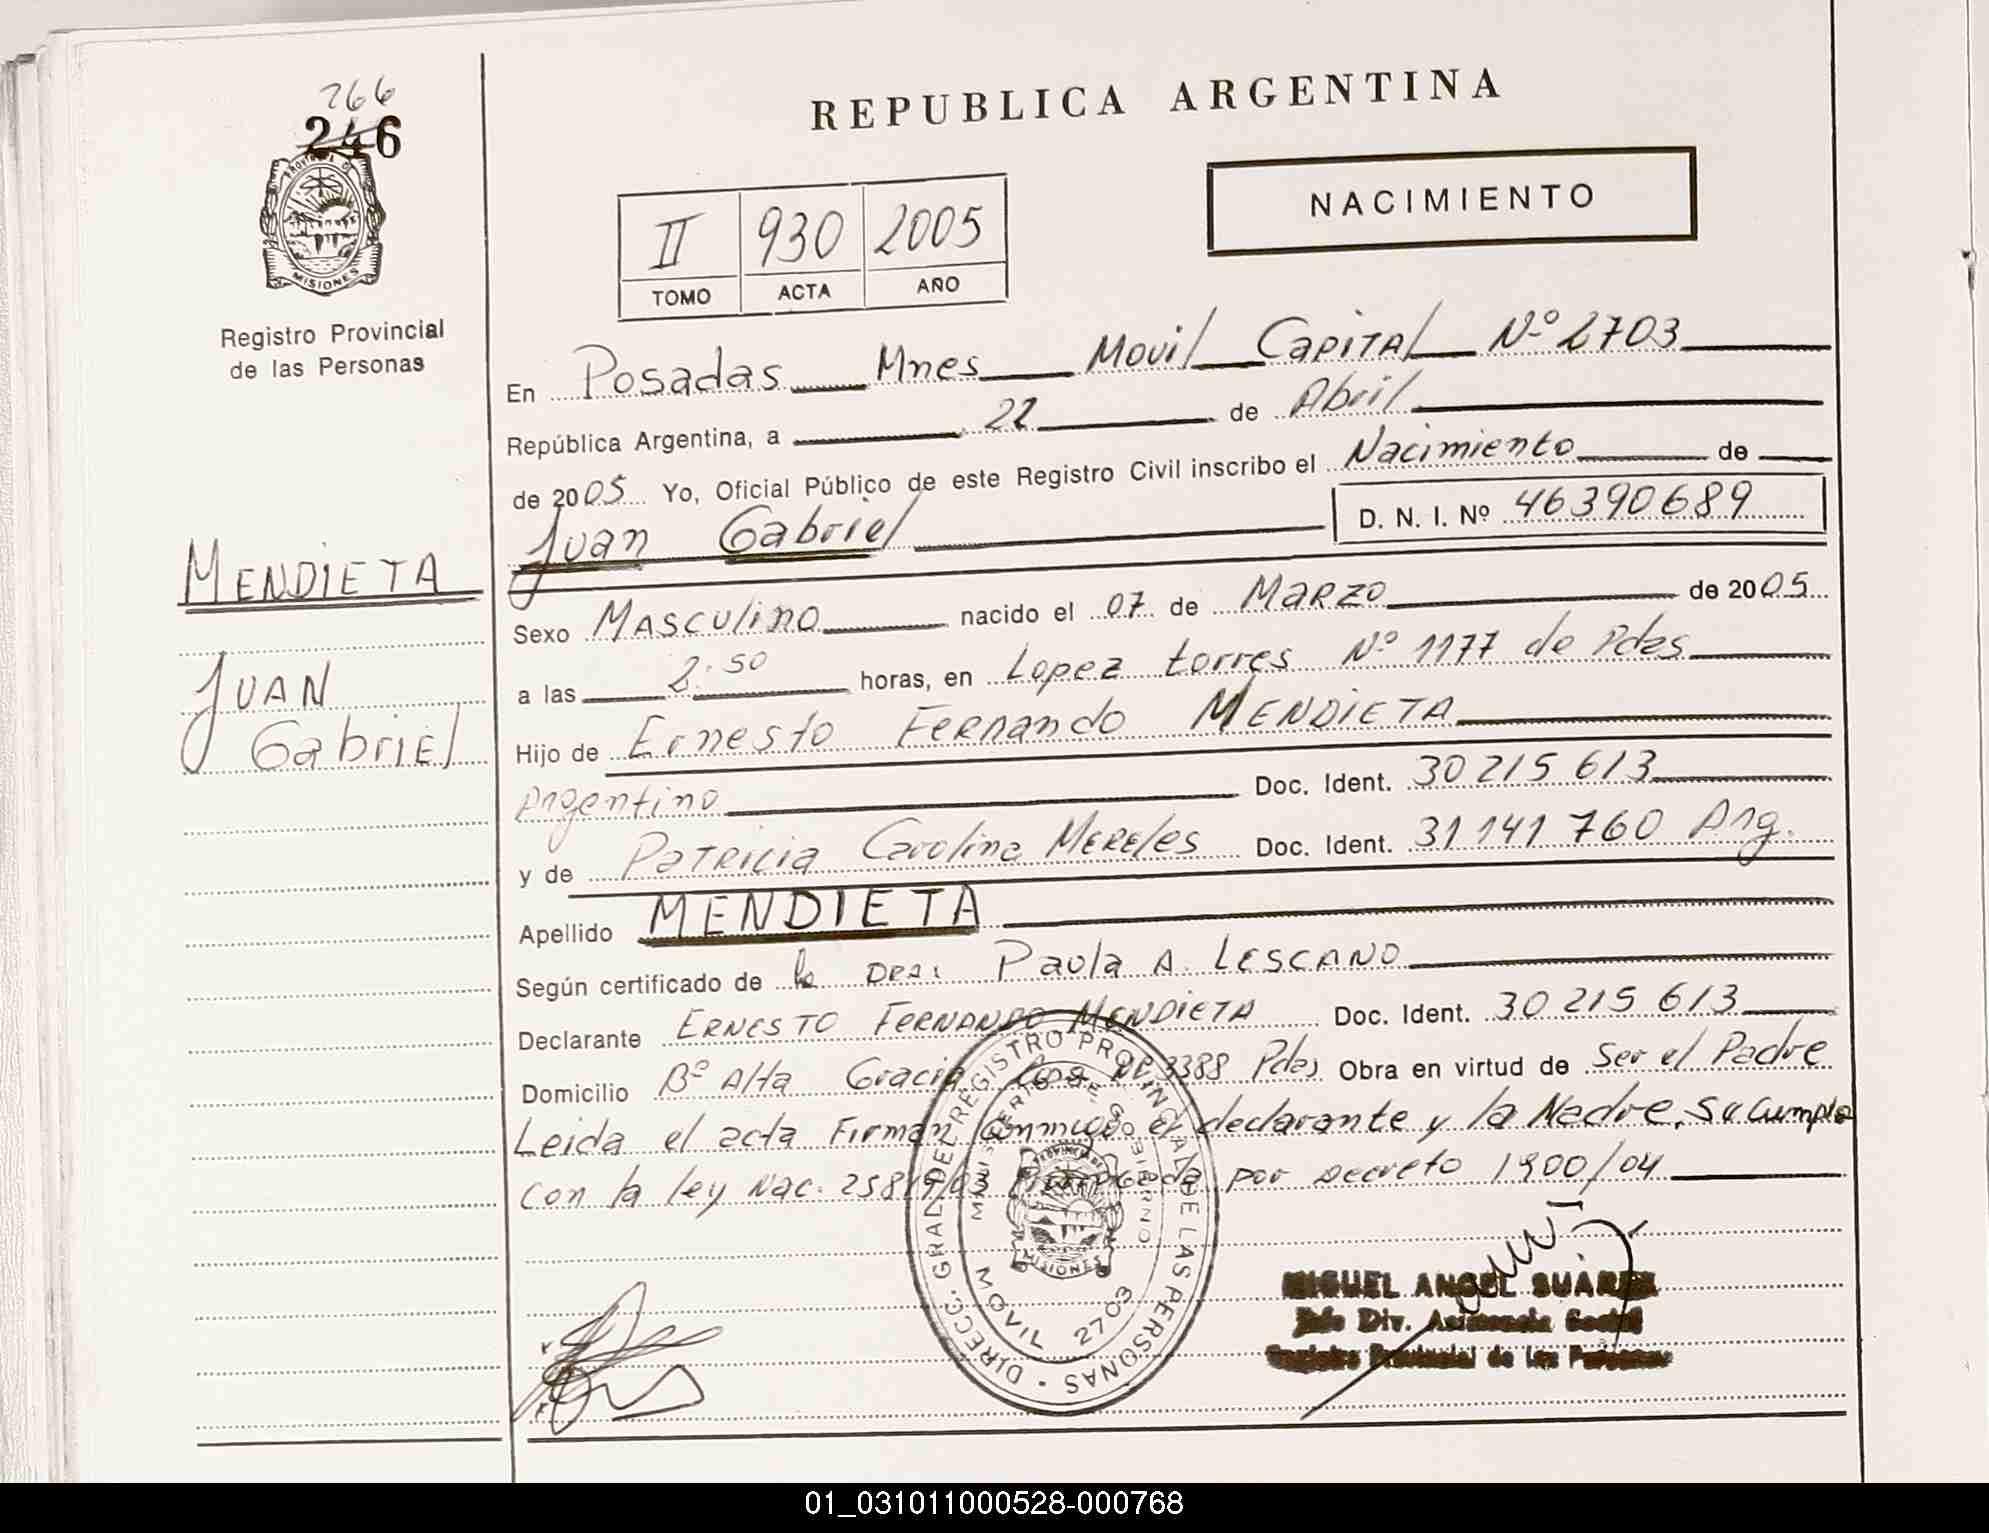 266
246
PROVINCIA DE
MISIONES
Registro Provincial
de las Personas
MENDIETA
JUAN
GabRIEL
REPUBLICA ARGENTINA
NACIMIENTO
II 930 2005
TOMO ACTA AÑO
En Posadas Mnes Movil CapiTAl Nº 2703
República Argentina, a 22 de Abril
de 2005 Yo, Oficial Público de este Registro Civil inscribo el Nacimiento de
Juan Gabriel D. N. I. Nº 46390689
Sexo MASCUlino nacido el 07 de MARZO de 2005
a las 2:50 horas, en Lopez torres Nº 1177 de Pdas
Hijo de Ernesto FERNANdo MENDIETA
Argentino Doc. Ident. 30 215 613
y de PATRICIA Carolina MEREles Doc. Ident. 31 141 760 Arg.
Apellido MENDIETA
Según certificado de la DRA: Paola A. LESCANO
Declarante ERNESTO FERNANDO MENDIETA Doc. Ident. 30 215 613
Domicilio Bº Alta Gracia 3388 Pdas Obra en virtud de Ser el Padre
Leida el acta Firman conmigo el declarante y la Madre. Se Cumple
con la ley Nac. por Decreto 1900/04
DIRECC. GRAL DEL REGISTRO PROVINCIAL DE LAS PERSONAS
MINISTERIO DE GOBIERNO
MISIONES
MOVIL 2703
MIGUEL ANGEL SUÁREZ
Jefe Div. Asistencia Social
Registro Provincial de las Personas
01_031011000528-000768